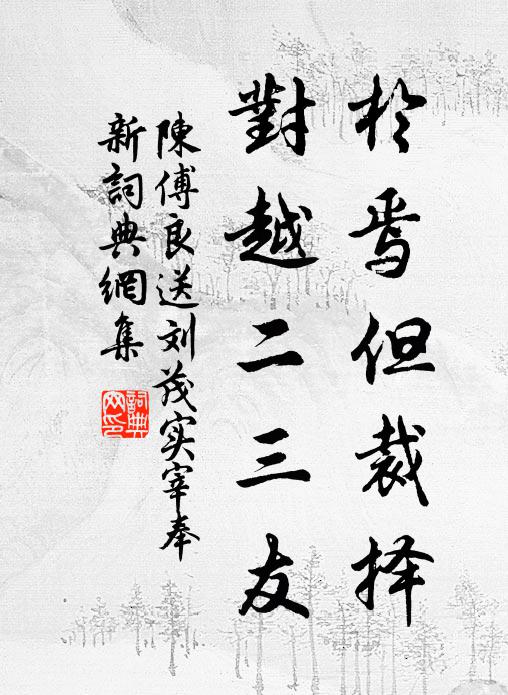 於焉但裁择
對越二三友
陳傅良送刘茂实宰奉
新詞典網集
詞典網印